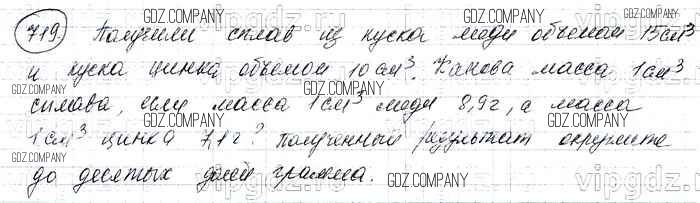 719. Получили сплав из куска меди объемом 15см³
и куска цинка объемом 10см³. Какова масса 1см³
сплава, если масса 1см³ меди 8,9г, а масса
1см³ цинка 7,1г? Полученный результат округлите
до десятых долей грамма.
GDZ.COMPANY
GDZ.COMPANY
GDZ.COMPANY
GDZ.COMPANY
GDZ.COMPANY
GDZ.COMPANY
GDZ.COMPANY
GDZ.COMPANY
GDZ.COMPANY
GDZ.COMPANY
vipgdz.ru
vipgdz.ru
vipgdz.ru